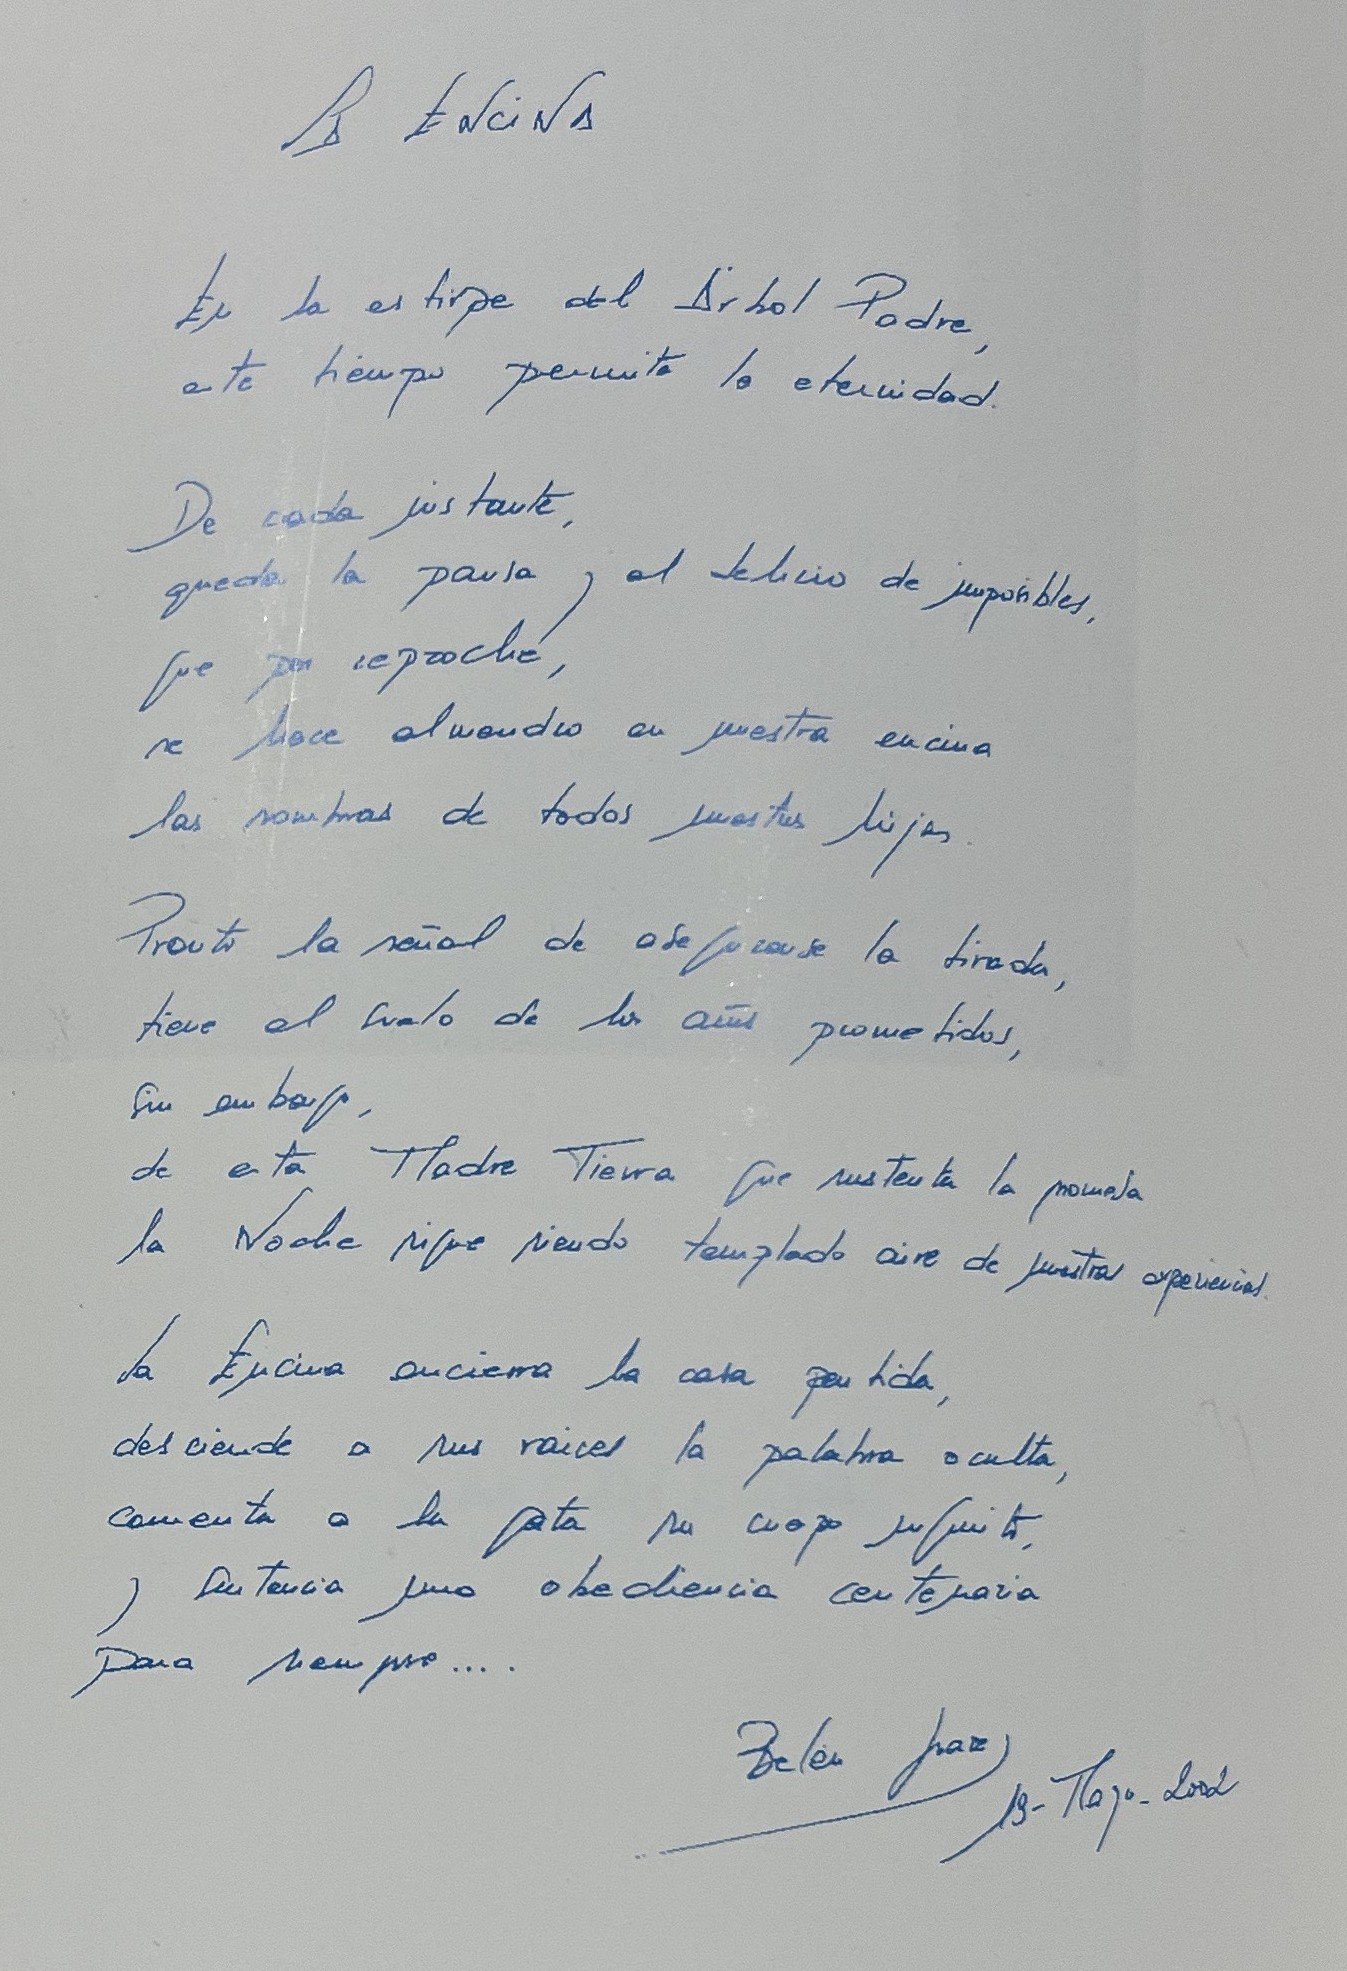 La ENCINA
En la estirpe del Árbol Padre,
este tiempo permite la eternidad.
De cada instante,
queda la pausa y el delirio de imposibles,
que por reproche,
se hace almendro en nuestra encina
las sombras de todos nuestros hijos.
Pronto la señal de asegurarse la tirada,
tiene el suelo de los años prometidos,
sin embargo,
de esta Madre Tierra que sustenta la promesa
la Noche sigue siendo templado aire de nuestras experiencias.
La Encina encierra la casa partida,
desciende a sus raices la palabra oculta,
comenta a la gata su cuerpo infinito,
y sentencia una obediencia centenaria
para siempre....
Belén Juárez
19-Mayo-2002